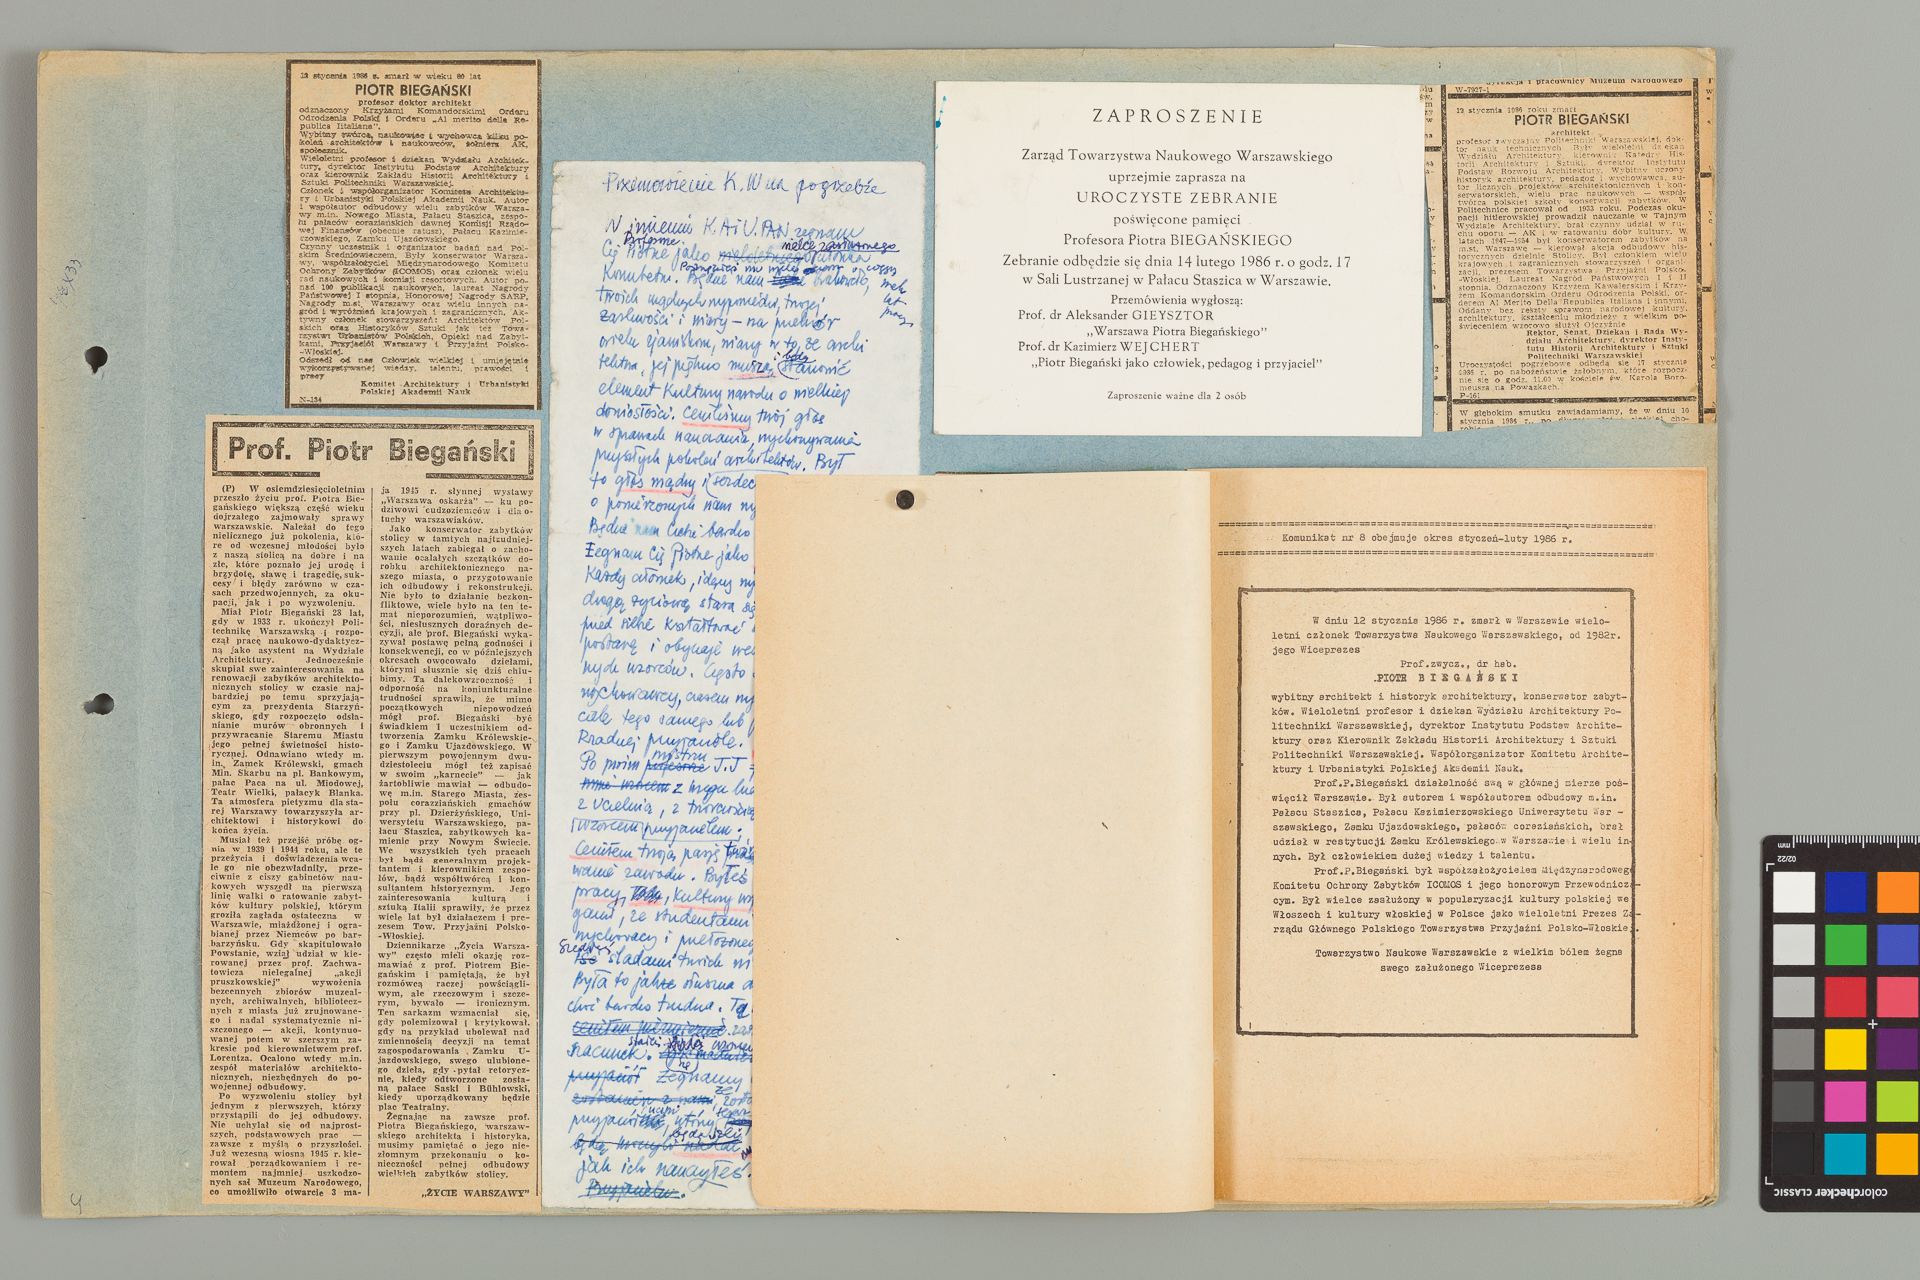 12 stycznia 1986 r. zmarł w wieku 80 lat
PIOTR BIEGAŃSKI
profesor doktor architekt
odznaczony Krzyżami Komandorskimi Orderu
Odrodzenia Polski i Orderu „Al merito della Re-
publica Iitaliana".
Wybitny twórca, naukowiec i wychowca kilku po-
koleń architektów i naukowców, żołnierz AK,
społecznik.
Wieloletni profesor i dziekan Wydziału Architek-
tury, dyrektor Instytutu Podstaw Architektury
oraz kierownik Zakładu Historii Architektury i
Sztuki Politechniki Warszawskiej.
Członek i współorganizator Komitetu Architektu-
ry i Urbanistyki Polskiej Akademii Nauk. Autor
i współautor odbudowy wielu zabytków Warsza-
wy m.in. Nowego Miasta, Pałacu Staszica, zespo-
łu pałaców corazziańskich dawnej Komisji Rządo-
wej Finansów (obecnie ratusz), Pałacu Kazimie-
rzowskiego, Zamku Ujazdowskiego.
Czynny uczestnik i organizator badań nad Pol-
skim Średniowieczem, Były konserwator Warsza-
wy, współzałożyciel Międzynarodowego Komitetu
Ochrony Zabytków (ICOMOS) oraz członek wielu
rad naukowych i komisji resortowych. Autor po-
nad 100 publikacji naukowych, laureat Nagrody
Państwowej I stopnia, Honorowej Nagrody SARP,
Nagrody m.st. Warszawy oraz wielu innych na-
gród i wyróżnień krajowych i zagranicznych, Ak-
tywny członek stowarzyszeń: Architektów Pol-
skich oraz Historyków Sztuki jak też Towa-
rzystw: Urbanistów Polskich, Opieki nad Zabyt-
kami, Przyjaciół Warszawy i Przyjaźni Polsko-
-Włoskiej.
Odszedł od nas Człowiek wielkiej i umiejętnie
wykorzystywanej wiedzy, talentu, prawości i
pracy
Komitet Architektury i Urbanistyki
Polskiej Akademii Nauk
N-134
Prof. Piotr Biegański
(P) W osiemdziesięcioletnim
przeszło życiu prof. Piotra Bie-
gańskiego większą część wieku
dojrzałego zajmowały sprawy
warszawskie. Należał do tego
nielicznego już pokolenia, któ-
re od wczesnej młodości było
z naszą stolicą na dobre i na
złe, które poznało jej urodę i
brzydotę, sławę i tragedię, suk-
cesy i błędy zarówno w cza-
sach przedwojennych, za oku-
pacji, jak i po wyzwoleniu.
Miał Piotr Biegański 28 lat,
gdy w 1933 r. ukończył Poli-
technikę Warszawską i rozpo-
czął pracę naukowo-dydaktycz-
ną jako asystent na Wydziale
Architektury. Jednocześnie
skupiał swe zainteresowania na
renowacji zabytków architekto-
nicznych stolicy w czasie naj-
bardziej po temu sprzyjają-
cym za prezydenta Starzyń-
skiego, gdy rozpoczęto odsła-
nianie murów obronnych i
przywracanie Staremu Miastu
jego pełnej świetności histo-
rycznej. Odnawiano wtedy m.
in. Zamek Królewski, gmach
Min. Skarbu na pl. Bankowym,
pałac Paca na ul. Miodowej,
Teatr Wielki, pałacyk Blanka.
Ta atmosfera pietyzmu dla sta-
rej Warszawy towarzyszyła ar-
chitektowi i historykowi do
końca życia.
Musiał też przejść próbę og-
nia w 1939 i 1944 roku, ale te
przeżycia i doświadczenia wca-
le go nie obezwładniły, prze-
ciwnie z ciszy gabinetów nau-
kowych wyszedł na pierwszą
linię walki o ratowanie zabyt-
ków kultury polskiej, którym
groziła zagłada ostateczna w
Warszawie, miażdżonej i ogra-
bianej przez Niemców po bar-
barzyńsku. Gdy skapitulowało
Powstanie, wziął udział w kie-
rowanej przez prof. Zachwa-
towicza nielegalnej „akcji
pruszkowskiej" wywożenia
bezcennych zbiorów muzeal-
nych, archiwalnych, bibliotecz-
nych z miasta już zrujnowane-
go i nadal systematycznie ni-
szczonego — akcji, kontynuo-
wanej potem w szerszym za-
kresie pod kierownictwem prof.
Lorentza. Ocalono wtedy m.in.
zespół materiałów architekto-
nicznych, niezbędnych do po-
wojennej odbudowy.
Po wyzwoleniu stolicy był
jednym z pierwszych, którzy
przystąpili do jej odbudowy.
Nie uchylał się od najprost-
szych, podstawowych prac —
zawsze z myślą o przyszłości.
Już wczesną wiosną 1945 r. kie-
rował porządkowaniem i re-
montem najmniej uszkodzo-
nych sal Muzeum Narodowego,
co umożliwiło otwarcie 3 ma-
ja 1945 r. słynnej wystawy
„Warszawa oskarża" — ku po-
dziwowi cudzoziemców i dla o-
tuchy warszawiaków.
Jako konserwator zabytków
stolicy w tamtych najtrudniej-
szych latach zabiegał o zacho-
wanie ocalałych szczątków do-
robku architektonicznego na-
szego miasta, o przygotowanie
ich odbudowy i rekonstrukcji.
Nie było to działanie bezkon-
fliktowe, wiele było na ten te-
mat nieporozumień, wątpliwo-
ści, niesłusznych doraźnych de-
cyzji, ale prof. Biegański wyka-
zywał postawę pełną godności i
konsekwencji, co w późniejszych
okresach owocowało dziełami,
którymi słusznie się dziś chlu-
bimy. Ta dalekowzroczność i
odporność na koniunkturalne
trudności sprawiła, że mimo
początkowych niepowodzeń
mógł prof. Biegański być
świadkiem i uczestnikiem od-
tworzenia Zamku Królewskie-
go i Zamku Ujazdowskiego. W
pierwszym powojennym dwu-
dziestoleciu mógł też zapisać
w swoim „karnecie" — jak
żartobliwie mawiał — odbudo-
wę m.in. Starego Miasta, zes-
połu corazziańskich gmachów
przy pl. Dzierżyńskiego, Uni-
wersytetu Warszawskiego, pa-
łacu Staszica, zabytkowych ka-
mienic przy Nowym Świecie.
We wszystkich tych pracach
był bądź generalnym projek-
tantem i kierownikiem zespo-
łów, bądź współtwórcą i kon-
sultantem historycznym. Jego
zainteresowania kulturą i
sztuką Italii sprawiły, że przez
wiele lat był działaczem i pre-
zesem Tow. Przyjaźni Polsko-
-Włoskiej.
Dziennikarze „Życia Warsza-
wy" często mieli okazję roz-
mawiać z prof. Piotrem Bie-
gańskim i pamiętają, że był
rozmówcą raczej powściągli-
wym, ale rzeczowym i szcze-
rym, bywało — ironicznym.
Ten sarkazm wzmacniał się,
gdy polemizował i krytykował,
gdy na przykład ubolewał nad
zmiennością decyzji na temat
zagospodarowania Zamku U-
jazdowskiego, swego ulubione-
go dzieła, gdy pytał retorycz-
nie, kiedy odtworzone zosta-
ną pałace Saski i Bühlowski,
kiedy uporządkowany będzie
plac Teatralny.
Żegnając na zawsze prof.
Piotra Biegańskiego, warszaw-
skiego architekta i historyka,
musimy pamiętać o jego nie-
złomnym przekonaniu o ko-
nieczności pełnej odbudowy
wielkich zabytków stolicy.
„ŻYCIE WARSZAWY"
Przemówienie K.W na pogrzebie
W imieniu KAiU.PAN żegnam
Cię Piotrze jako członka
Komitetu. Będzie nam brakowało,
twoich mądrych wypowiedzi, twojej
żarliwości i wiary — na przekór
wielu zjawiskom, wiary w to, że archi
tektura, jej piękno muszą i będą stanowić
element kultury narodu o wielkiej
doniosłości. Ceniliśmy twój głos
w sprawach nauczania, wychowywania
przyszłych pokoleń architektów. Był
to głos mądry i serdec
o powierzonych nam
Będzie nam Ciebie bardzo
Żegnam Cię Piotrze jako
Każdy człowiek, idąc
drogą życiową stara się
przed siebie kształtować
postawę i obyczaje
nych wzorców. Często
wychowawcy, czasem
ciele tego samego lub
Rzadziej przyjaciele.
Po moim mistrzu J.J
z kręgu
z uczelnią, z twórczością
wzorcem przyjacielem.
Ceniłem twoją pasję
wanie zawodu. Byłeś
pracy, kultury
gami, ze studentami
wychowawcy i przełożonego
śladami twoich
Była to jakże słuszna
choć bardzo trudna.
szacunek.
Żegnamy
przyjaciele, który
jak ich nauczyłeś.
ZAPROSZENIE
Zarząd Towarzystwa Naukowego Warszawskiego
uprzejmie zaprasza na
UROCZYSTE ZEBRANIE
poświęcone pamięci
Profesora Piotra BIEGAŃSKIEGO
Zebranie odbędzie się dnia 14 lutego 1986 r. o godz. 17
w Sali Lustrzanej w Pałacu Staszica w Warszawie.
Przemówienia wygłoszą:
Prof. dr Aleksander GIEYSZTOR
„Warszawa Piotra Biegańskiego"
Prof. dr Kazimierz WEJCHERT
„Piotr Biegański jako człowiek, pedagog i przyjaciel"
Zaproszenie ważne dla 2 osób
i pracownicy Muzeum Narodowego
W-7927-1
12 stycznia 1986 roku zmarł
PIOTR BIEGAŃSKI
architekt
profesor zwyczajny Politechniki Warszawskiej, dok-
tor nauk technicznych. Były wieloletni dziekan
Wydziału Architektury, kierownik Katedry His-
torii Architektury i Sztuki, dyrektor Instytutu
Podstaw Rozwoju Architektury. Wybitny uczony
historyk architektury, pedagog i wychowawca, au-
tor licznych projektów architektonicznych i kon-
serwatorskich, wielu prac naukowych — współ-
twórca polskiej szkoły konserwacji zabytków. W
Politechnice pracował od 1933 roku. Podczas oku-
pacji hitlerowskiej prowadził nauczanie w Tajnym
Wydziale Architektury, brał czynny udział w ru-
chu oporu — AK i w ratowaniu dóbr kultury. W
latach 1947—1954 był konserwatorem zabytków na
m.st. Warszawę — kierował akcją odbudowy his-
torycznych dzielnic Stolicy. Był członkiem wielu
krajowych i zagranicznych stowarzyszeń i organi-
zacji, prezesem Towarzystwa Przyjaźni Polsko-
-Włoskiej. Laureat Nagród Państwowych I i II
stopnia. Odznaczony Krzyżem Kawalerskim i Krzy-
żem Komandorskim Orderu Odrodzenia Polski, or-
derem Al Merito Della Republica Italiana i innymi.
Oddany bez reszty sprawom narodowej kultury,
architektury, kształceniu młodzieży z wielkim po-
święceniem wzorowo służył Ojczyźnie
Rektor, Senat, Dziekan i Rada Wy-
działu Architektury, dyrektor Insty-
tutu Historii Architektury i Sztuki
Politechniki Warszawskiej
Uroczystości pogrzebowe odbędą się 17 stycznia
1986 r. po nabożeństwie żałobnym, które rozpocz-
nie się o godz. 11.00 w kościele św. Karola Boro-
meusza na Powązkach.
P-161
W głębokim smutku zawiadamiamy, że w dniu 10
stycznia 1986 r., po
Komunikat nr 8 obejmuje okres styczeń-luty 1986 r.
W dniu 12 stycznia 1986 r. zmarł w Warszawie wielo-
letni członek Towarzystwa Naukowego Warszawskiego, od 1982r.
jego Wiceprezes
Prof.zwycz., dr hab.
PIOTR BIEGAŃSKI
wybitny architekt i historyk architektury, konserwator zabyt-
ków. Wieloletni profesor i dziekan Wydziału Architektury Po-
litechniki Warszawskiej, dyrektor Instytutu Podstaw Archite-
ktury oraz Kierownik Zakładu Historii Architektury i Sztuki
Politechniki Warszawskiej. Współorganizator Komitetu Archite-
ktury i Urbanistyki Polskiej Akademii Nauk.
Prof.P.Biegański działalność swą w głównej mierze poś-
więcił Warszawie. Był autorem i współautorem odbudowy m.in.
Pałacu Staszica, Pałacu Kazimierzowskiego Uniwersytetu War -
szawskiego, Zamku Ujazdowskiego, pałaców coraziańskich, brał
udział w restytucji Zamku Królewskiego w Warszawie i wielu in-
nych. Był człowiekiem dużej wiedzy i talentu.
Prof.P.Biegański był współzałożycielem Międzynarodowego
Komitetu Ochrony Zabytków ICOMOS i jego honorowym Przewodniczą-
cym. Był wielce zasłużony w popularyzacji kultury polskiej we
Włoszech i kultury włoskiej w Polsce jako wieloletni Prezes Za-
rządu Głównego Polskiego Towarzystwa Przyjaźni Polsko-Włoskiej.
Towarzystwo Naukowe Warszawskie z wielkim bólem żegna
swego załużonego Wiceprezesa
colorchecker CLASSIC
mm
02/22
4